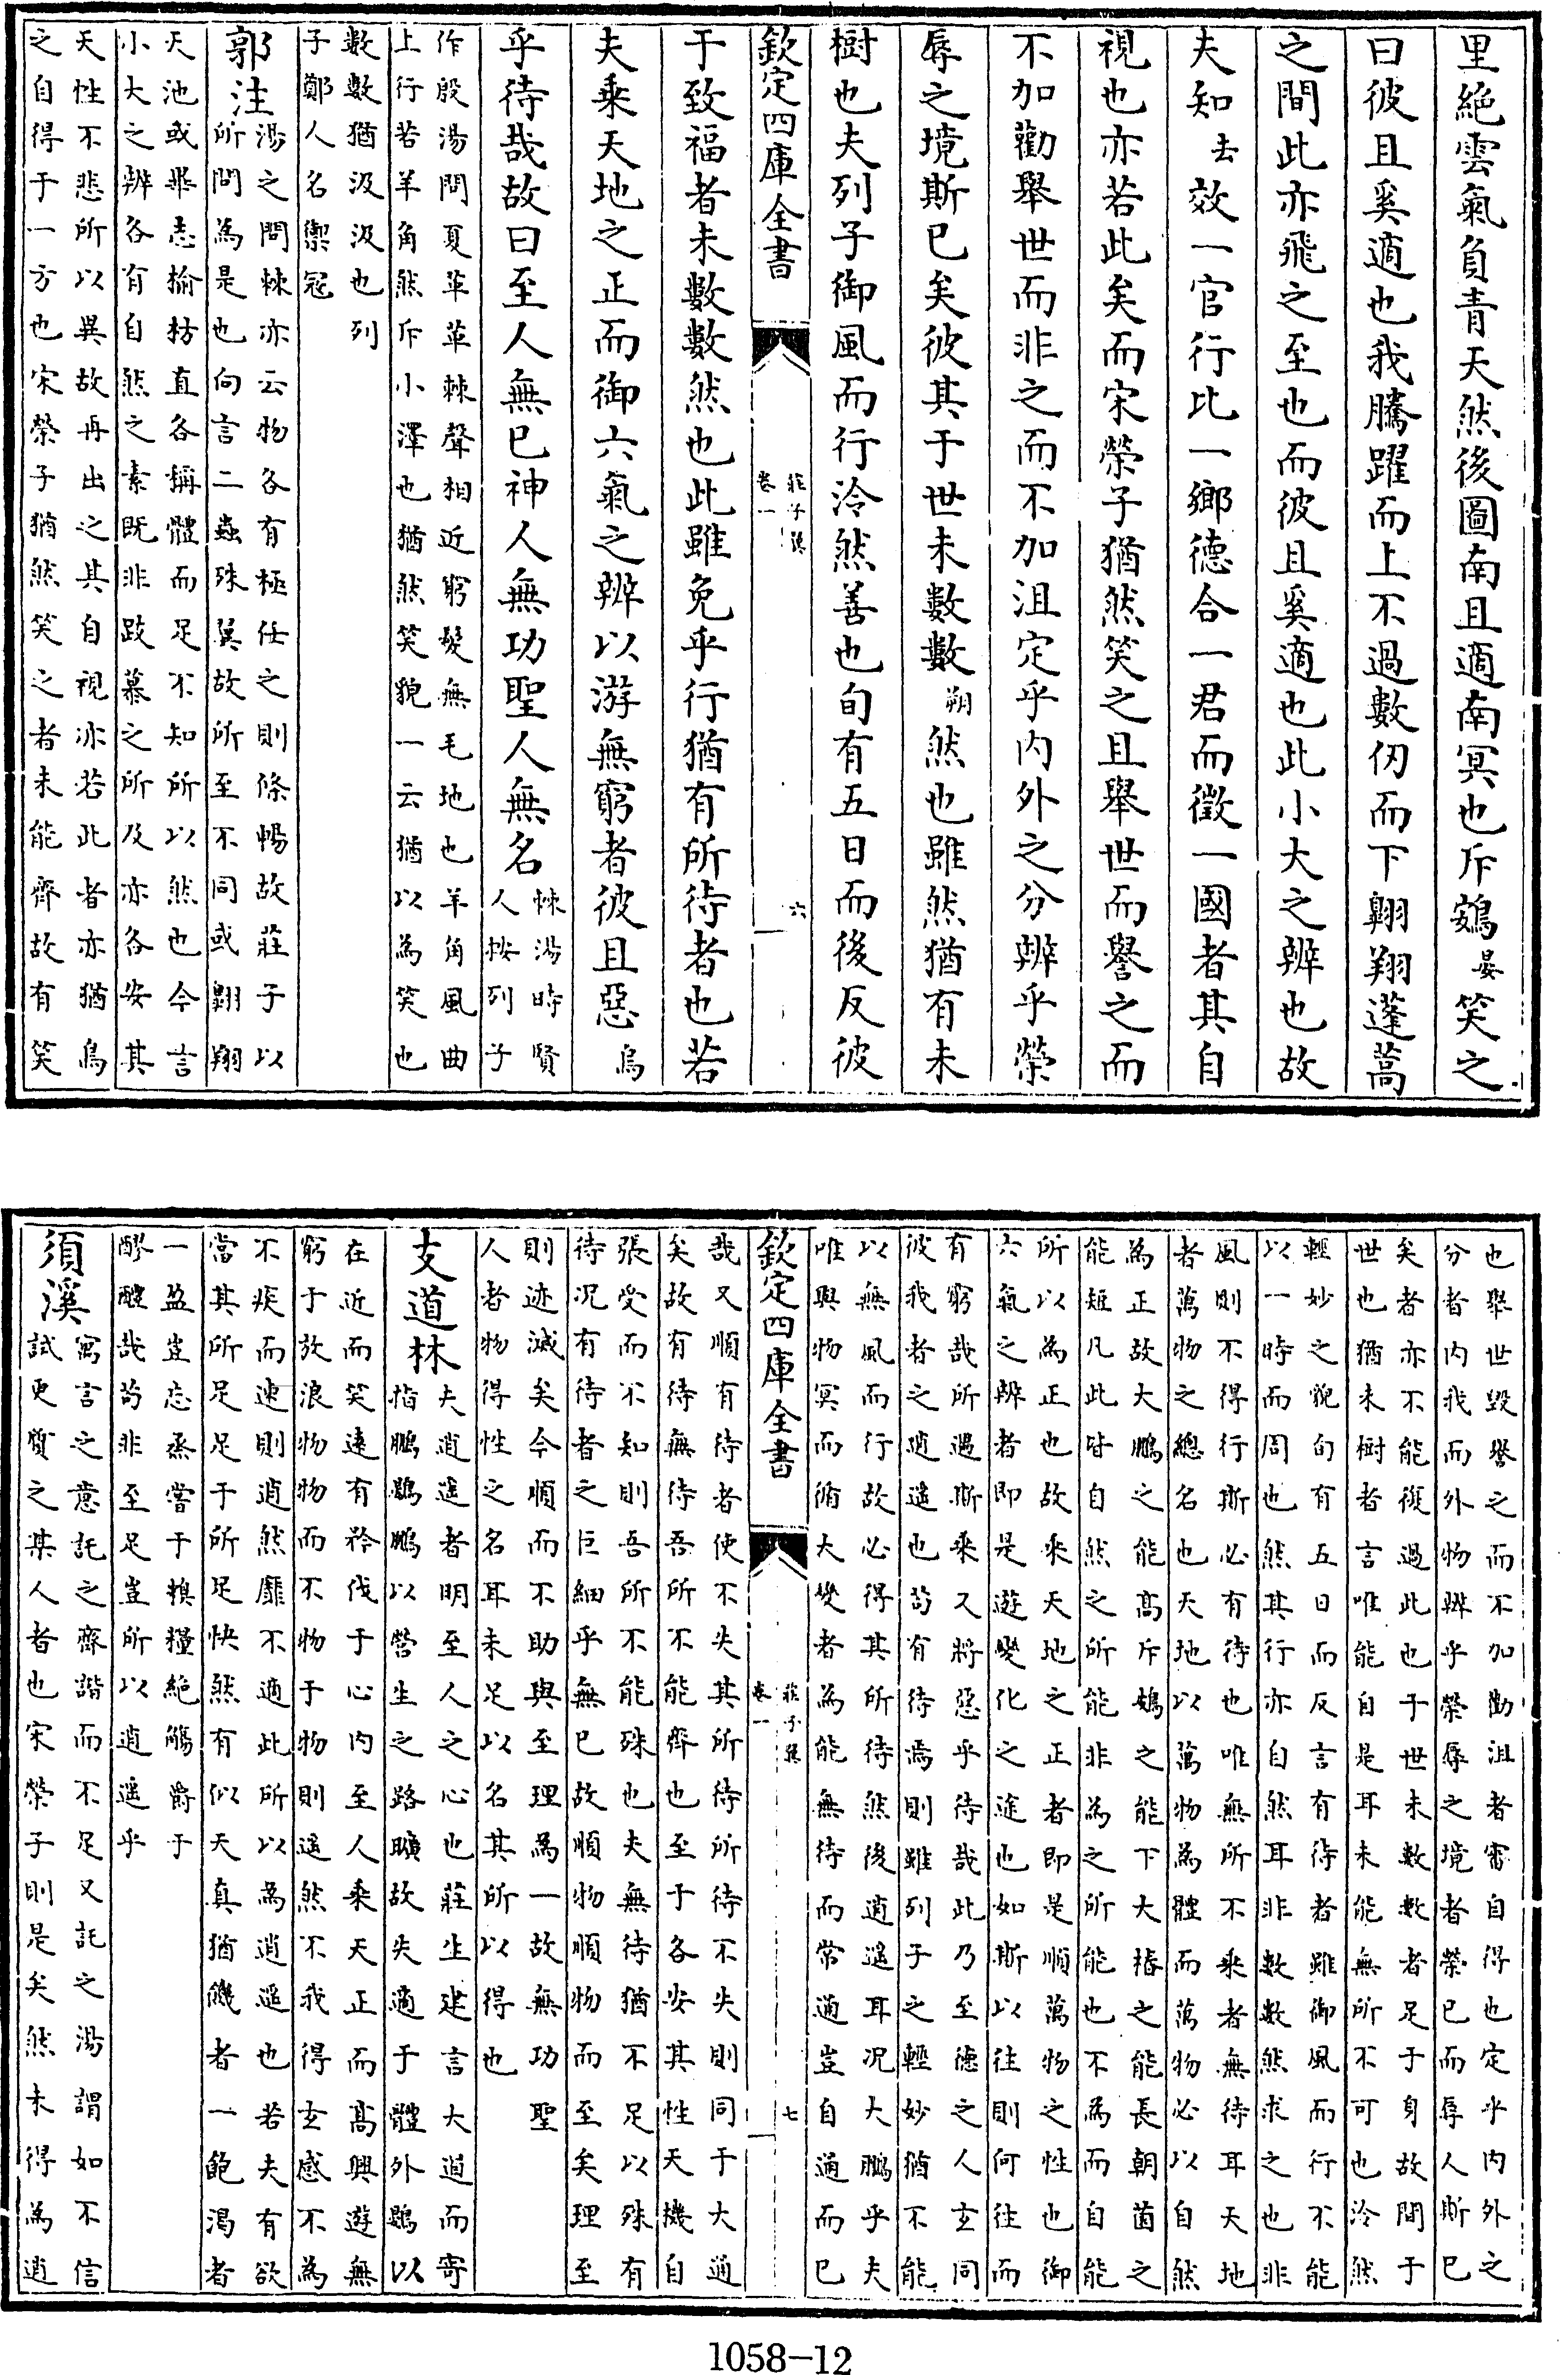 里絶雲氣負青天然後圖南且適南冥也斥鴳晏笑之
曰彼且奚適也我騰躍而上不過數仞而下翺翔蓬蒿
之間此亦飛之至也而彼且奚適也此小大之辨也故
夫知去效一官行比一鄉德合一君而徵一國者其自
視也亦若此矣而宋榮子猶然笑之且舉世而譽之而
不加勸舉世而非之而不加沮定乎内外之分辨乎榮
辱之境斯已矣彼其于世未數數朔然也雖然猶有未
樹也夫列子御風而行泠然善也旬有五日而後反彼
欽定四庫全書
莊子翼
卷一
六
于致福者未數數然也此雖免乎行猶有所待者也若
夫乘天地之正而御六氣之辨以游無窮者彼且惡烏
乎待哉故曰至人無已神人無功聖人無名棘湯時賢
人按列子
作殷湯問夏革革棘聲相近窮髮無毛地也羊角風曲
上行若羊角然斥小澤也猶然笑貌一云猶以為笑也
數數猶汲汲也列
子鄭人名禦寇
郭注湯之問棘亦云物各有極任之則條暢故莊子以
所問為是也向言二蟲殊異故所至不同或翺翔
天池或畢志榆枋直各稱體而足不知所以然也今言
小大之辨各有自然之素既非跂慕之所及亦各安其
天性不悲所以異故再出之其自視亦若此者亦猶鳥
之自得于一方也宋榮子猶然笑之者未能齊故有笑
也舉世毀譽之而不加勸沮者審自得也定乎内外之
分者内我而外物辨乎榮辱之境者榮已而辱人斯已
矣者亦不能復過此也于世未數數者足于身故間于
世也猶未樹者言唯能自是耳未能無所不可也泠然
輕妙之貌旬有五日而反言有待者雖御風而行不能
以一時而周也然其行亦自然耳非數數然求之也非
風則不得行斯必有待也唯無所不乘者無待耳天地
者萬物之總名也天地以萬物為體而萬物必以自然
為正故大鵬之能高斥鴳之能下大椿之能長朝菌之
能短凡此皆自然之所能非為之所能也不為而自能
所以為正也故乘天地之正者即是順萬物之性也御
六氣之辨者即是遊變化之途也如斯以往則何往而
有窮哉所遇斯乘又將惡乎待哉此乃至德之人玄同
彼我者之逍遥也茍有待焉則雖列子之輕妙猶不能
以無風而行故必得其所待然後逍遥耳况大鵬乎夫
唯與物冥而循大變者為能無待而常通豈自通而已
欽定四庫全書
莊子翼
卷一
七
哉又順有待者使不失其所待所待不失則同于大通
矣故有待無待吾所不能齊也至于各安其性天機自
張受而不知則吾所不能殊也夫無待猶不足以殊有
待况有待者之巨細乎無已故順物順物而至矣理至
則迹滅矣今順而不助與至理為一故無功聖
人者物得性之名耳未足以名其所以得也
支道林夫逍遥者明至人之心也莊生建言大道而寄
指鵬鷃鵬以營生之路曠故失適于體外鷃以
在近而笑遠有矜伐于心内至人乘天正而高興遊無
窮于放浪物物而不物于物則遥然不我得玄感不為
不疾而速則逍然靡不適此所以為逍遥也若夫有欲
當其所足足于所足快然有似天真猶饑者一飽渴者
一盈豈忘烝嘗于糗糧絶觴爵于
醪醴哉茍非至足豈所以逍遥乎
須溪寓言之意託之齊諧而不足又託之湯謂如不信
試更質之某人者也宋榮子則是矣然未得為逍
1058-12